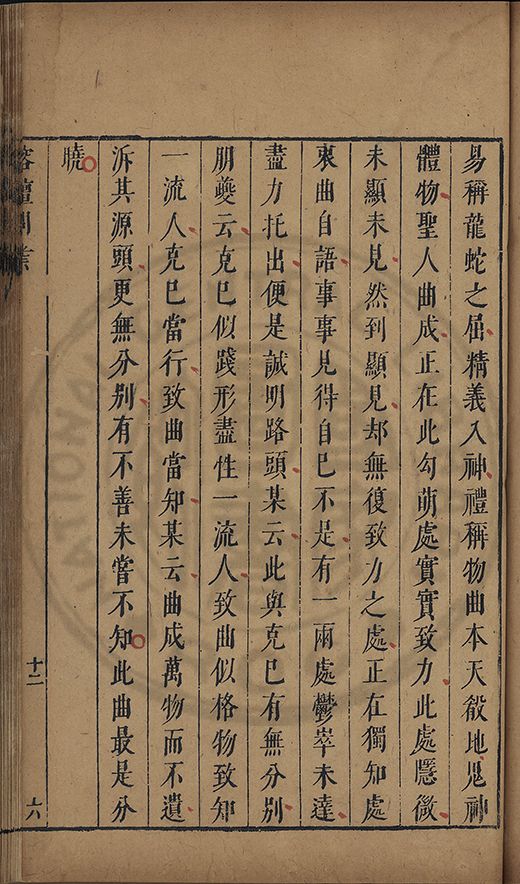 易稱龍蛇之屈精義入神禮稱物曲本天殽地鬼神
體物聖人曲成正在此勾萌處實實致力此處隱微
未顯未見然到顯見却無復致力之處正在獨知處
衷曲自語事事見得自巳不是有一兩處鬱萃未達
盡力托出便是誠明路頭某云此與克巳有無分別
朋夔云克巳似踐形盡性一流人致曲似格物致知
一流人克巳當行致曲當知某云曲成萬物而不遺
泝其源頭更無分別有不善未嘗不知此曲最是分
曉
榕壇問業
十二
六